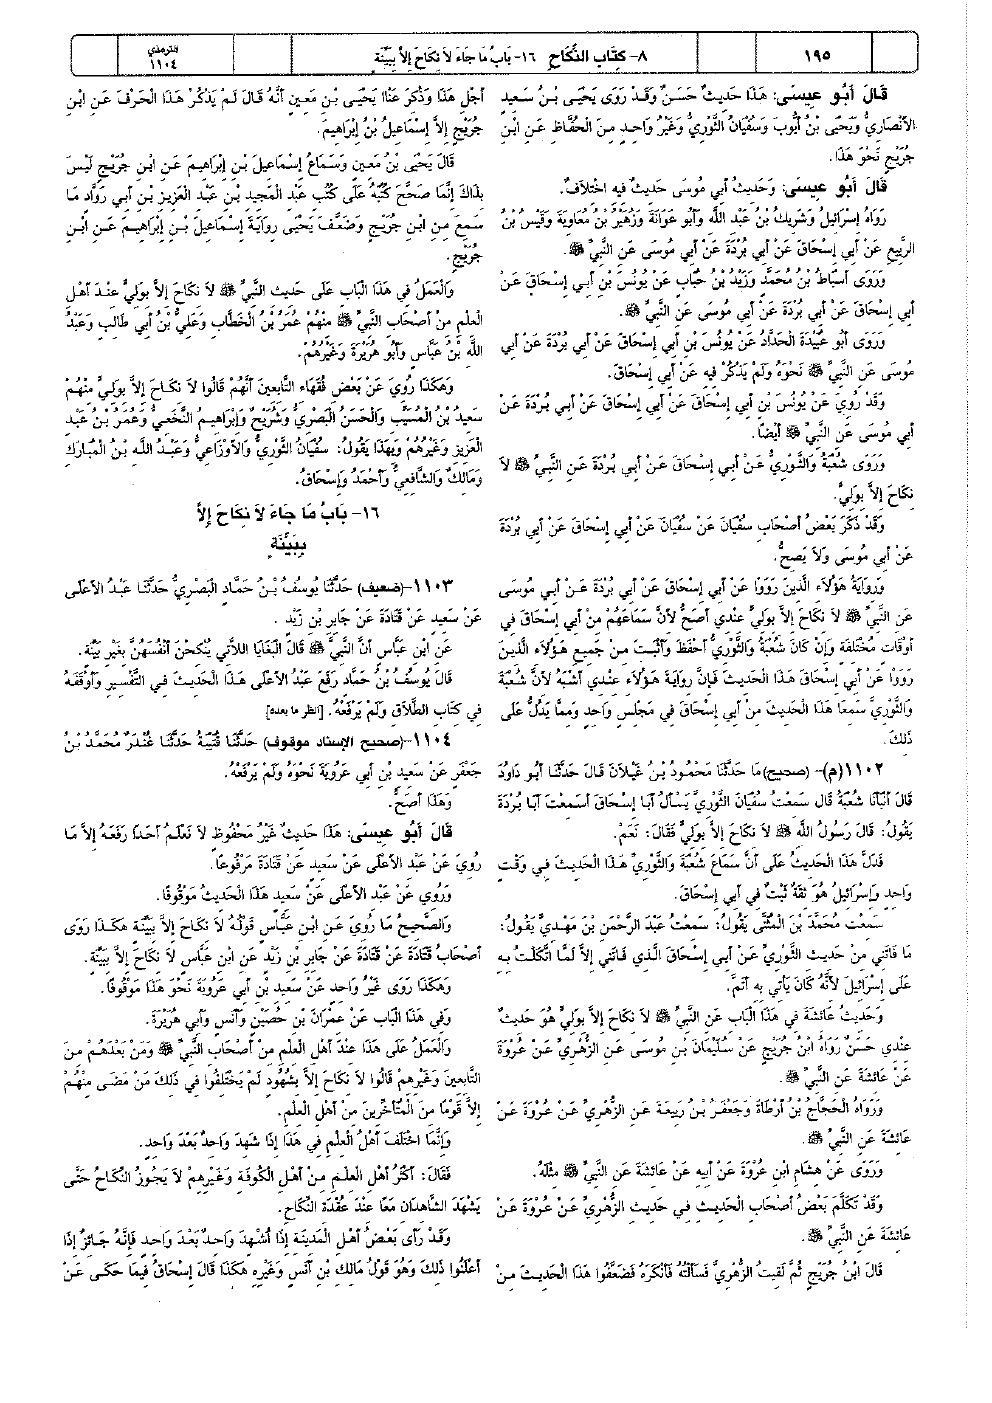 ١٩٥
٨- كِتَاب النِّكَاحِ ١٦- بَابُ مَا جَاءَ لاَ نِكَاحَ إِلاَّ بِبَيِّنَةٍ
الترمذي
١١٠٤
قَالَ أَبُو عِيسَى: هَذَا حَدِيثٌ حَسَنٌ وَقَدْ رَوَى يَحْيَى بْنُ سَعِيدٍ
الأَنْصَارِيُّ وَيَحْيَى بْنُ أَيُّوبَ وَسُفْيَانُ الثَّوْرِيُّ وَغَيْرُ وَاحِدٍ مِنَ الْحُفَّاظِ عَنِ ابْنِ
جُرَيْجٍ نَحْوَ هَذَا.
قَالَ أَبُو عِيسَى: وَحَدِيثُ أَبِي مُوسَى حَدِيثٌ فِيهِ اخْتِلاَفٌ.
رَوَاهُ إِسْرَائِيلُ وَشَرِيكُ بْنُ عَبْدِ اللَّهِ وَأَبُو عَوَانَةَ وَزُهَيْرُ بْنُ مُعَاوِيَةَ وَقَيْسُ بْنُ
الرَّبِيعِ عَنْ أَبِي إِسْحَاقَ عَنْ أَبِي بُرْدَةَ عَنْ أَبِي مُوسَى عَنِ النَّبِيِّ ﷺ.
وَرَوَى أَسْبَاطُ بْنُ مُحَمَّدٍ وَزَيْدُ بْنُ حُبَابٍ عَنْ يُونُسَ بْنِ أَبِي إِسْحَاقَ عَنْ
أَبِي إِسْحَاقَ عَنْ أَبِي بُرْدَةَ عَنْ أَبِي مُوسَى عَنِ النَّبِيِّ ﷺ.
وَرَوَى أَبُو عُبَيْدَةَ الْحَدَّادُ عَنْ يُونُسَ بْنِ أَبِي إِسْحَاقَ عَنْ أَبِي بُرْدَةَ عَنْ أَبِي
مُوسَى عَنِ النَّبِيِّ ﷺ نَحْوَهُ وَلَمْ يَذْكُرْ فِيهِ عَنْ أَبِي إِسْحَاقَ.
وَقَدْ رُوِيَ عَنْ يُونُسَ بْنِ أَبِي إِسْحَاقَ عَنْ أَبِي إِسْحَاقَ عَنْ أَبِي بُرْدَةَ عَنْ
أَبِي مُوسَى عَنِ النَّبِيِّ ﷺ أَيْضًا.
وَرَوَى شُعْبَةُ وَالثَّوْرِيُّ عَنْ أَبِي إِسْحَاقَ عَنْ أَبِي بُرْدَةَ عَنِ النَّبِيِّ ﷺ لاَ
نِكَاحَ إِلاَّ بِوَلِيٍّ.
وَقَدْ ذَكَرَ بَعْضُ أَصْحَابِ سُفْيَانَ عَنْ سُفْيَانَ عَنْ أَبِي إِسْحَاقَ عَنْ أَبِي بُرْدَةَ
عَنْ أَبِي مُوسَى وَلاَ يَصِحُّ.
وَرِوَايَةُ هَؤُلاَءِ الَّذِينَ رَوَوْا عَنْ أَبِي إِسْحَاقَ عَنْ أَبِي بُرْدَةَ عَنْ أَبِي مُوسَى
عَنِ النَّبِيِّ ﷺ لاَ نِكَاحَ إِلاَّ بِوَلِيٍّ عِنْدِي أَصَحُّ لأَنَّ سَمَاعَهُمْ مِنْ أَبِي إِسْحَاقَ فِي
أَوْقَاتٍ مُخْتَلِفَةٍ وَإِنْ كَانَ شُعْبَةُ وَالثَّوْرِيُّ أَحْفَظَ وَأَثْبَتَ مِنْ جَمِيعِ هَؤُلاَءِ الَّذِينَ
رَوَوْا عَنْ أَبِي إِسْحَاقَ هَذَا الْحَدِيثَ فَإِنَّ رِوَايَةَ هَؤُلاَءِ عِنْدِي أَشْبَهُ لأَنَّ شُعْبَةَ
وَالثَّوْرِيَّ سَمِعَا هَذَا الْحَدِيثَ مِنْ أَبِي إِسْحَاقَ فِي مَجْلِسٍ وَاحِدٍ وَمِمَّا يَدُلُّ عَلَى
ذَلِكَ.
١١٠٢(م)- (صحيح)مَا حَدَّثَنَا مَحْمُودُ بْنُ غَيْلاَنَ قَالَ حَدَّثَنَا أَبُو دَاوُدَ
قَالَ أَنْبَأَنَا شُعْبَةُ قَالَ سَمِعْتُ سُفْيَانَ الثَّوْرِيَّ يَسْأَلُ أَبَا إِسْحَاقَ أَسَمِعْتَ أَبَا بُرْدَةَ
يَقُولُ: قَالَ رَسُولُ اللَّهِ ﷺ لاَ نِكَاحَ إِلاَّ بِوَلِيٍّ فَقَالَ: نَعَمْ.
فَدَلَّ هَذَا الْحَدِيثُ عَلَى أَنَّ سَمَاعَ شُعْبَةَ وَالثَّوْرِيِّ هَذَا الْحَدِيثَ فِي وَقْتٍ
وَاحِدٍ وَإِسْرَائِيلُ هُوَ ثِقَةٌ ثَبْتٌ فِي أَبِي إِسْحَاقَ.
سَمِعْتُ مُحَمَّدَ بْنَ الْمُثَنَّى يَقُولُ: سَمِعْتُ عَبْدَ الرَّحْمَنِ بْنَ مَهْدِيٍّ يَقُولُ:
مَا فَاتَنِي مِنْ حَدِيثِ الثَّوْرِيِّ عَنْ أَبِي إِسْحَاقَ الَّذِي فَاتَنِي إِلاَّ لَمَّا اتَّكَلْتُ بِهِ
عَلَى إِسْرَائِيلَ لأَنَّهُ كَانَ يَأْتِي بِهِ أَتَمَّ.
وَحَدِيثُ عَائِشَةَ فِي هَذَا الْبَابِ عَنِ النَّبِيِّ ﷺ لاَ نِكَاحَ إِلاَّ بِوَلِيٍّ هُوَ حَدِيثٌ
عِنْدِي حَسَنٌ رَوَاهُ ابْنُ جُرَيْجٍ عَنْ سُلَيْمَانَ بْنِ مُوسَى عَنِ الزُّهْرِيِّ عَنْ عُرْوَةَ
عَنْ عَائِشَةَ عَنِ النَّبِيِّ ﷺ.
وَرَوَاهُ الْحَجَّاجُ بْنُ أَرْطَاةَ وَجَعْفَرُ بْنُ رَبِيعَةَ عَنِ الزُّهْرِيِّ عَنْ عُرْوَةَ عَنْ
عَائِشَةَ عَنِ النَّبِيِّ ﷺ.
وَرَوَى عَنْ هِشَامِ ابْنِ عُرْوَةَ عَنْ أَبِيهِ عَنْ عَائِشَةَ عَنِ النَّبِيِّ ﷺ مِثْلَهُ.
وَقَدْ تَكَلَّمَ بَعْضُ أَصْحَابِ الْحَدِيثِ فِي حَدِيثِ الزُّهْرِيِّ عَنْ عُرْوَةَ عَنْ
عَائِشَةَ عَنِ النَّبِيِّ ﷺ.
قَالَ ابْنُ جُرَيْجٍ ثُمَّ لَقِيتُ الزُّهْرِيَّ فَسَأَلْتُهُ فَأَنْكَرَهُ فَضَعَّفُوا هَذَا الْحَدِيثَ مِنْ
أَجْلِ هَذَا وَذُكِرَ عَنْ يَحْيَى بْنِ مَعِينٍ أَنَّهُ قَالَ لَمْ يَذْكُرْ هَذَا الْحَرْفَ عَنِ ابْنِ
جُرَيْجٍ إِلاَّ إِسْمَاعِيلُ بْنُ إِبْرَاهِيمَ.
قَالَ يَحْيَى بْنُ مَعِينٍ وَسَمَاعُ إِسْمَاعِيلَ بْنِ إِبْرَاهِيمَ عَنِ ابْنِ جُرَيْجٍ لَيْسَ
بِذَاكَ إِنَّمَا صَحَّحَ كُتُبَهُ عَلَى كُتُبِ عَبْدِ الْمَجِيدِ بْنِ عَبْدِ الْعَزِيزِ بْنِ أَبِي رَوَّادٍ مَا
سَمِعَ مِنِ ابْنِ جُرَيْجٍ وَضَعَّفَ يَحْيَى رِوَايَةَ إِسْمَاعِيلَ بْنِ إِبْرَاهِيمَ عَنِ ابْنِ
جُرَيْجٍ.
وَالْعَمَلُ فِي هَذَا الْبَابِ عَلَى حَدِيثِ النَّبِيِّ ﷺ لاَ نِكَاحَ إِلاَّ بِوَلِيٍّ عِنْدَ أَهْلِ
الْعِلْمِ مِنْ أَصْحَابِ النَّبِيِّ ﷺ مِنْهُمْ عُمَرُ بْنُ الْخَطَّابِ وَعَلِيُّ بْنُ أَبِي طَالِبٍ وَعَبْدُ
اللَّهِ بْنُ عَبَّاسٍ وَأَبُو هُرَيْرَةَ وَغَيْرُهُمْ.
وَهَكَذَا رُوِيَ عَنْ بَعْضِ فُقَهَاءِ التَّابِعِينَ أَنَّهُمْ قَالُوا لاَ نِكَاحَ إِلاَّ بِوَلِيٍّ مِنْهُمْ
سَعِيدُ بْنُ الْمُسَيَّبِ وَالْحَسَنُ الْبَصْرِيُّ وَشُرَيْحٌ وَإِبْرَاهِيمُ النَّخَعِيُّ وَعُمَرُ بْنُ عَبْدِ
الْعَزِيزِ وَغَيْرُهُمْ وَبِهَذَا يَقُولُ: سُفْيَانُ الثَّوْرِيُّ وَالأَوْزَاعِيُّ وَعَبْدُ اللَّهِ بْنُ الْمُبَارَكِ
وَمَالِكٌ وَالشَّافِعِيُّ وَأَحْمَدُ وَإِسْحَاقُ.
١٦- بَابُ مَا جَاءَ لاَ نِكَاحَ إِلاَّ
بِبَيِّنَةٍ
١١٠٣-(ضعيف) حَدَّثَنَا يُوسُفُ بْنُ حَمَّادٍ الْبَصْرِيُّ حَدَّثَنَا عَبْدُ الأَعْلَى
عَنْ سَعِيدٍ عَنْ قَتَادَةَ عَنْ جَابِرِ بْنِ زَيْدٍ .
عَنِ ابْنِ عَبَّاسٍ أَنَّ النَّبِيَّ ﷺ قَالَ الْبَغَايَا اللاَّتِي يُنْكِحْنَ أَنْفُسَهُنَّ بِغَيْرِ بَيِّنَةٍ.
قَالَ يُوسُفُ بْنُ حَمَّادٍ رَفَعَ عَبْدُ الأَعْلَى هَذَا الْحَدِيثَ فِي التَّفْسِيرِ وَأَوْقَفَهُ
فِي كِتَابِ الطَّلاَقِ وَلَمْ يَرْفَعْهُ. [انظر ما بعده]
١١٠٤-(صحيح الإسناد موقوف) حَدَّثَنَا قُتَيْبَةُ حَدَّثَنَا غُنْدَرٌ مُحَمَّدُ بْنُ
جَعْفَرٍ عَنْ سَعِيدِ بْنِ أَبِي عَرُوبَةَ نَحْوَهُ وَلَمْ يَرْفَعْهُ.
وَهَذَا أَصَحُّ.
قَالَ أَبُو عِيسَى: هَذَا حَدِيثٌ غَيْرُ مَحْفُوظٍ لاَ نَعْلَمُ أَحَدًا رَفَعَهُ إِلاَّ مَا
رُوِيَ عَنْ عَبْدِ الأَعْلَى عَنْ سَعِيدٍ عَنْ قَتَادَةَ مَرْفُوعًا.
وَرُوِي عَنْ عَبْدِ الأَعْلَى عَنْ سَعِيدٍ هَذَا الْحَدِيثُ مَوْقُوفًا.
وَالصَّحِيحُ مَا رُوِيَ عَنِ ابْنِ عَبَّاسٍ قَوْلُهُ لاَ نِكَاحَ إِلاَّ بِبَيِّنَةٍ هَكَذَا رَوَى
أَصْحَابُ قَتَادَةَ عَنْ قَتَادَةَ عَنْ جَابِرِ بْنِ زَيْدٍ عَنِ ابْنِ عَبَّاسٍ لاَ نِكَاحَ إِلاَّ بِبَيِّنَةٍ.
وَهَكَذَا رَوَى غَيْرُ وَاحِدٍ عَنْ سَعِيدِ بْنِ أَبِي عَرُوبَةَ نَحْوَ هَذَا مَوْقُوفًا.
وَفِي هَذَا الْبَابِ عَنْ عِمْرَانَ بْنِ حُصَيْنٍ وَأَنَسٍ وَأَبِي هُرَيْرَةَ.
وَالْعَمَلُ عَلَى هَذَا عِنْدَ أَهْلِ الْعِلْمِ مِنْ أَصْحَابِ النَّبِيِّ ﷺ وَمَنْ بَعْدَهُمْ مِنَ
التَّابِعِينَ وَغَيْرِهِمْ قَالُوا لاَ نِكَاحَ إِلاَّ بِشُهُودٍ لَمْ يَخْتَلِفُوا فِي ذَلِكَ مَنْ مَضَى مِنْهُمْ
إِلاَّ قَوْمًا مِنَ الْمُتَأَخِّرِينَ مِنْ أَهْلِ الْعِلْمِ.
وَإِنَّمَا اخْتَلَفَ أَهْلُ الْعِلْمِ فِي هَذَا إِذَا شَهِدَ وَاحِدٌ بَعْدَ وَاحِدٍ.
فَقَالَ: أَكْثَرُ أَهْلِ الْعِلْمِ مِنْ أَهْلِ الْكُوفَةِ وَغَيْرِهِمْ لاَ يَجُوزُ النِّكَاحُ حَتَّى
يَشْهَدَ الشَّاهِدَانِ مَعًا عِنْدَ عُقْدَةِ النِّكَاحِ.
وَقَدْ رَأَى بَعْضُ أَهْلِ الْمَدِينَةِ إِذَا أُشْهِدَ وَاحِدٌ بَعْدَ وَاحِدٍ فَإِنَّهُ جَائِزٌ إِذَا
أَعْلَنُوا ذَلِكَ وَهُوَ قَوْلُ مَالِكِ بْنِ أَنَسٍ وَغَيْرِهِ هَكَذَا قَالَ إِسْحَاقُ فِيمَا حَكَى عَنْ